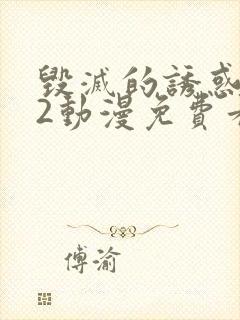 毀滅的誘惑
2動漫免費
傅渝